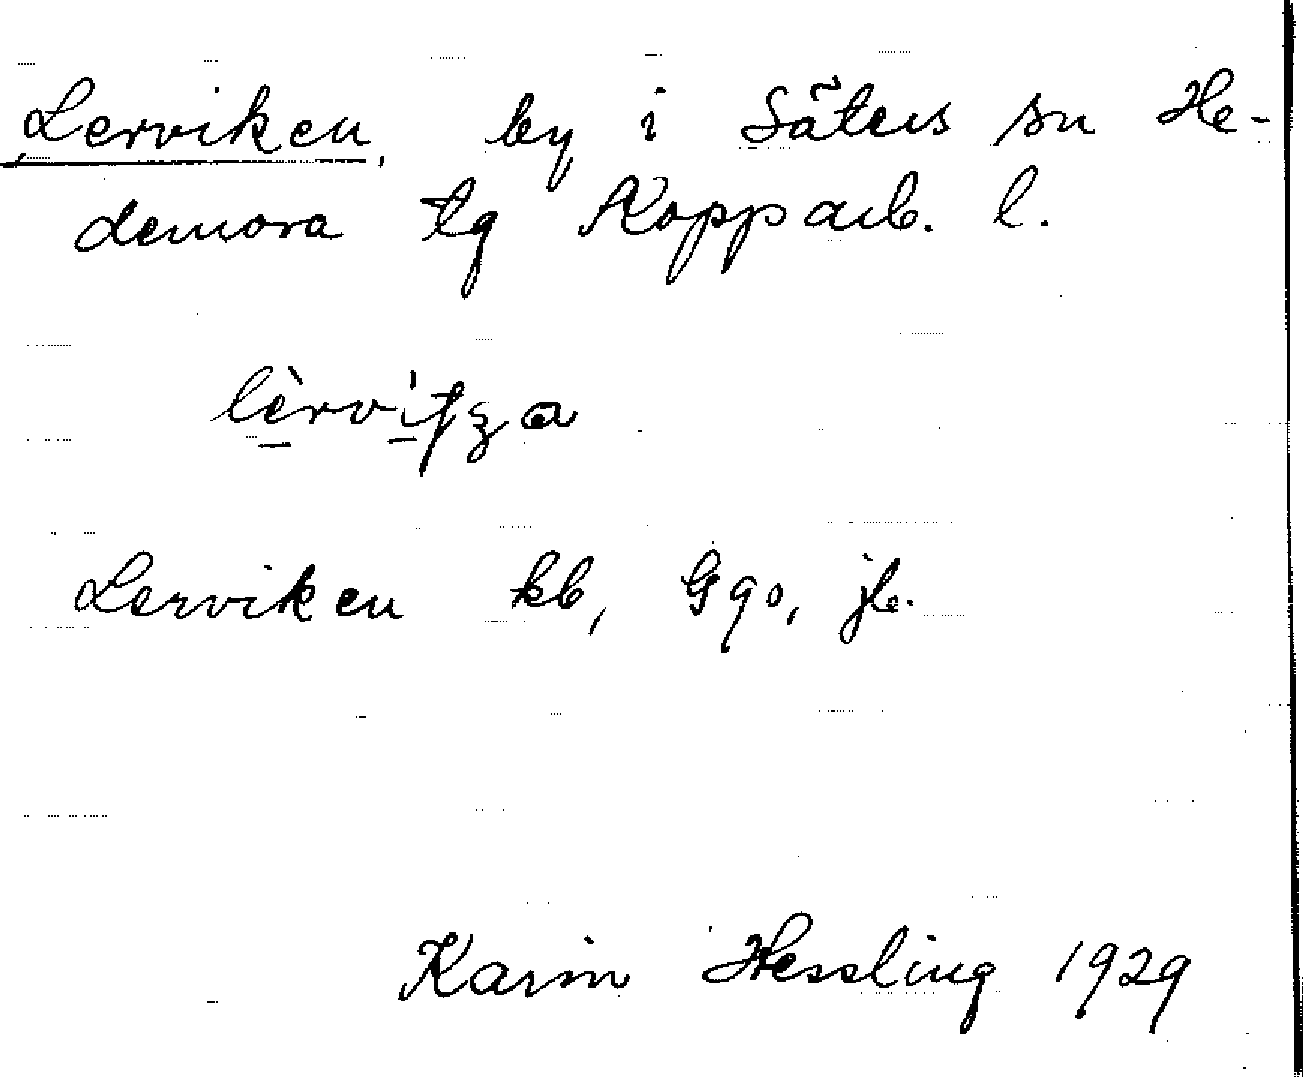 Lerviken, by i Säters sn He-
demora tg Kopparb. l.
Lerviken kb, Ggo, jb.
Karin Hessling 1929